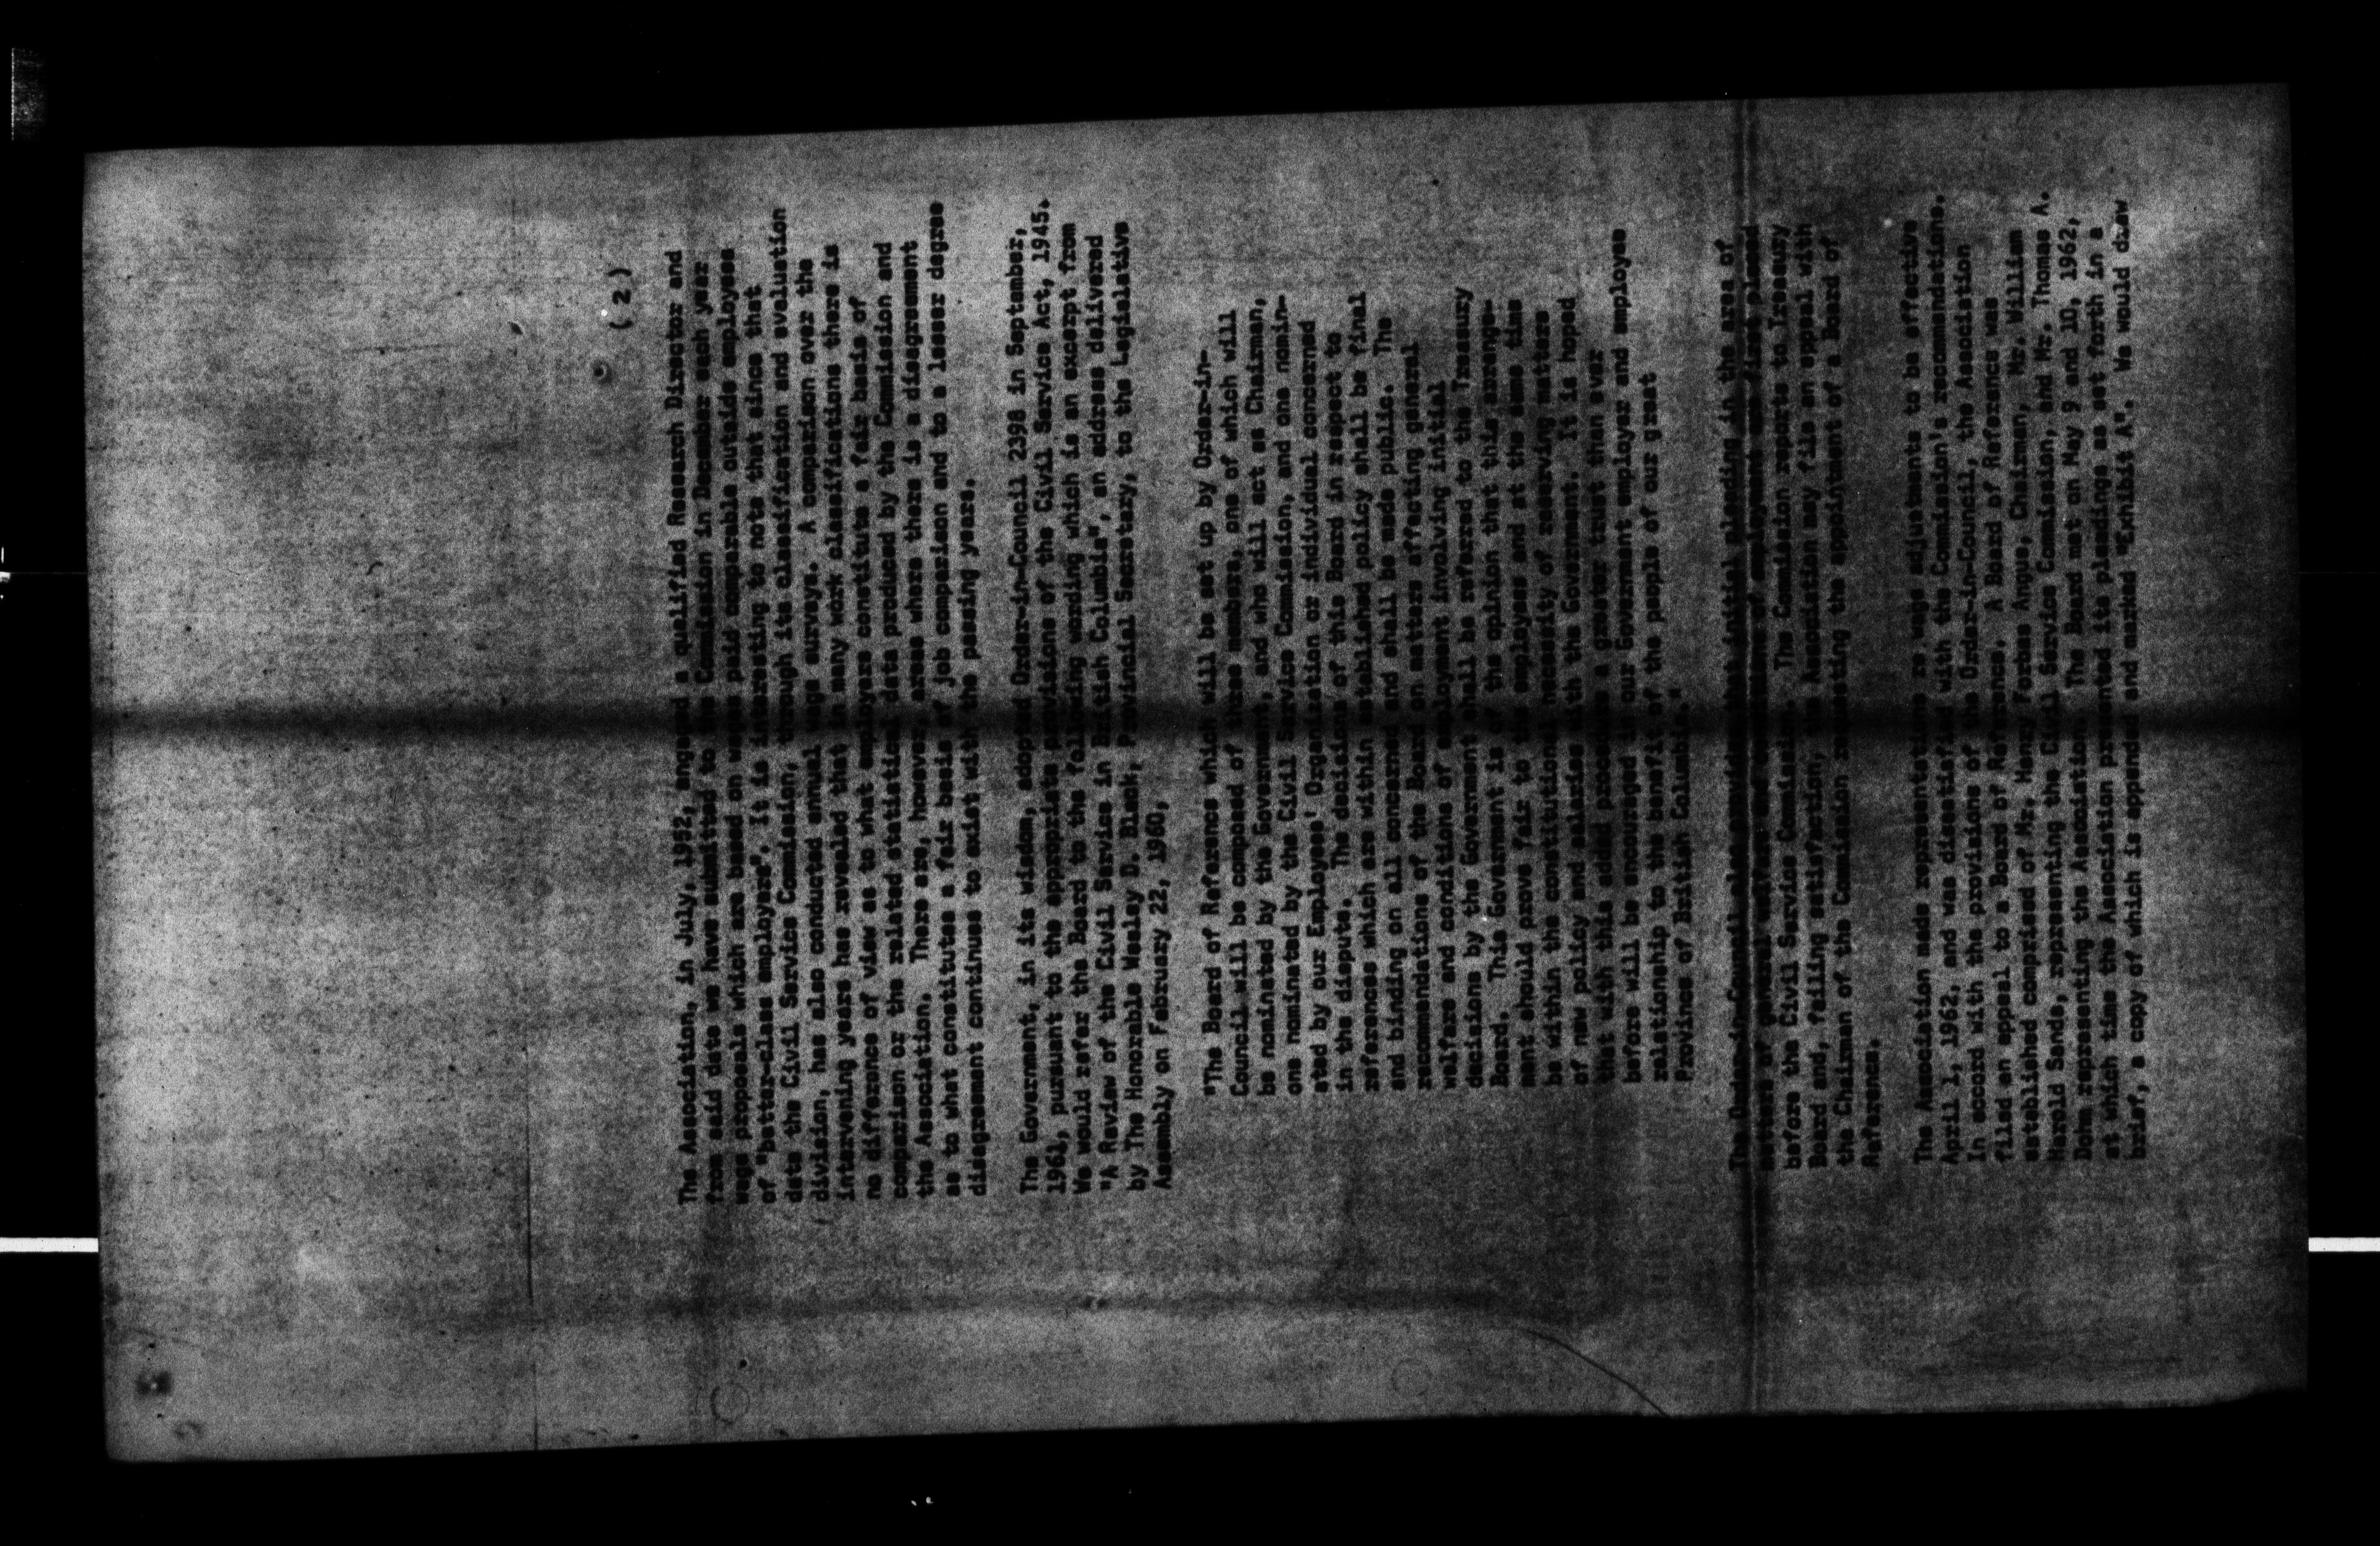 ( 2 )
The Association, in July, 1952, engaged a qualified Research Director and
from said date we have submitted to the Commission in December each year
wage proposals which are based on wages paid comparable outside employees
of "better-class employers". It is interesting to note that since that
date the Civil Service Commission, through its classification and evaluation
division, has also conducted annual wage surveys. A comparison over the
intervening years has revealed that in many work classifications there is
no difference of view as to what employers constitute a fair basis of
comparison or the related statistical data produced by the Commission and
the Association. There are, however, areas where there is a disagreement
as to what constitutes a fair basis of job comparison and to a lesser degree
disagreement continues to exist with the passing years.
The Government, in its wisdom, adopted Order-in-Council 2398 in September,
1961, pursuant to the appropriate provisions of the Civil Service Act, 1945.
We would refer the Board to the following wording which is an excerpt from
"A Review of the Civil Service in British Columbia", an address delivered
by The Honorable Wesley D. Black, Provincial Secretary, to the Legislative
Assembly on February 22, 1960,
"The Board of Reference which will be set up by Order-in-
Council will be composed of three members, one of which will
be nominated by the Government, and who will act as Chairman,
one nominated by the Civil Service Commission, and one nomin-
ated by our Employees' Organization or individual concerned
in the dispute. The decisions of this Board in respect to
references which are within established policy shall be final
and binding on all concerned and shall be made public. The
recommendations of the Board on matters affecting general
welfare and conditions of employment involving initial
decisions by the Government shall be referred to the Treasury
Board. This Government is of the opinion that this arrange-
ment should prove fair to the employees and at the same time
be within the constitutional necessity of reserving matters
of new policy and salaries with the Government. It is hoped
that with this added procedure a greater trust than ever
before will be encouraged in our Government employer and employee
relationship to the benefit of the people of our great
Province of British Columbia."
The Order-in-Council also provides that initial pleading in the area of
matters of general welfare and conditions of employment are first placed
before the Civil Service Commission. The Commission reports to Treasury
Board and, failing satisfaction, the Association may file an appeal with
the Chairman of the Commission requesting the appointment of a Board of
Reference.
The Association made representations re wage adjustments to be effective
April 1, 1962, and was dissatisfied with the Commission's recommendations.
In accord with the provisions of the Order-in-Council, the Association
filed an appeal to a Board of Reference. A Board of Reference was
established comprised of Mr. Henry Forbes Angus, Chairman, Mr. William
Harold Sands, representing the Civil Service Commission, and Mr. Thomas A.
Dohm representing the Association. The Board met on May 9 and 10, 1962,
at which time the Association presented its pleadings as set forth in a
brief, a copy of which is appended and marked "Exhibit A". We would draw